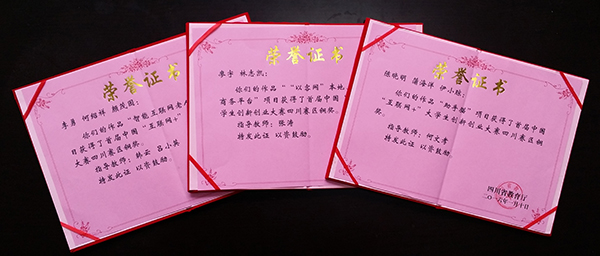 荣誉证书
李勇 何绍祥 熊茂国:
你们的作品"智能互联网老人
目获得了首届中国"互联网+"
大赛四川赛区铜奖。
指导教师: 韩云 吕小兵
特发此证 以资鼓励。
荣誉证书
廖宇 林志凯:
你们的作品""以念网"本地
商务平台"项目获得了首届中国
学生创新创业大赛四川赛区铜奖。
指导教师: 张涛
特发此证 以资鼓励。
荣誉证书
陈晓明 蒲海洋 伊小琼:
你们的作品"助手帮"项目获得了首届中国
"互联网+"大学生创新创业大赛四川赛区铜
奖。
指导教师: 何文孝
特发此证 以资鼓励。
四川省教育厅
二〇一六年一月十日